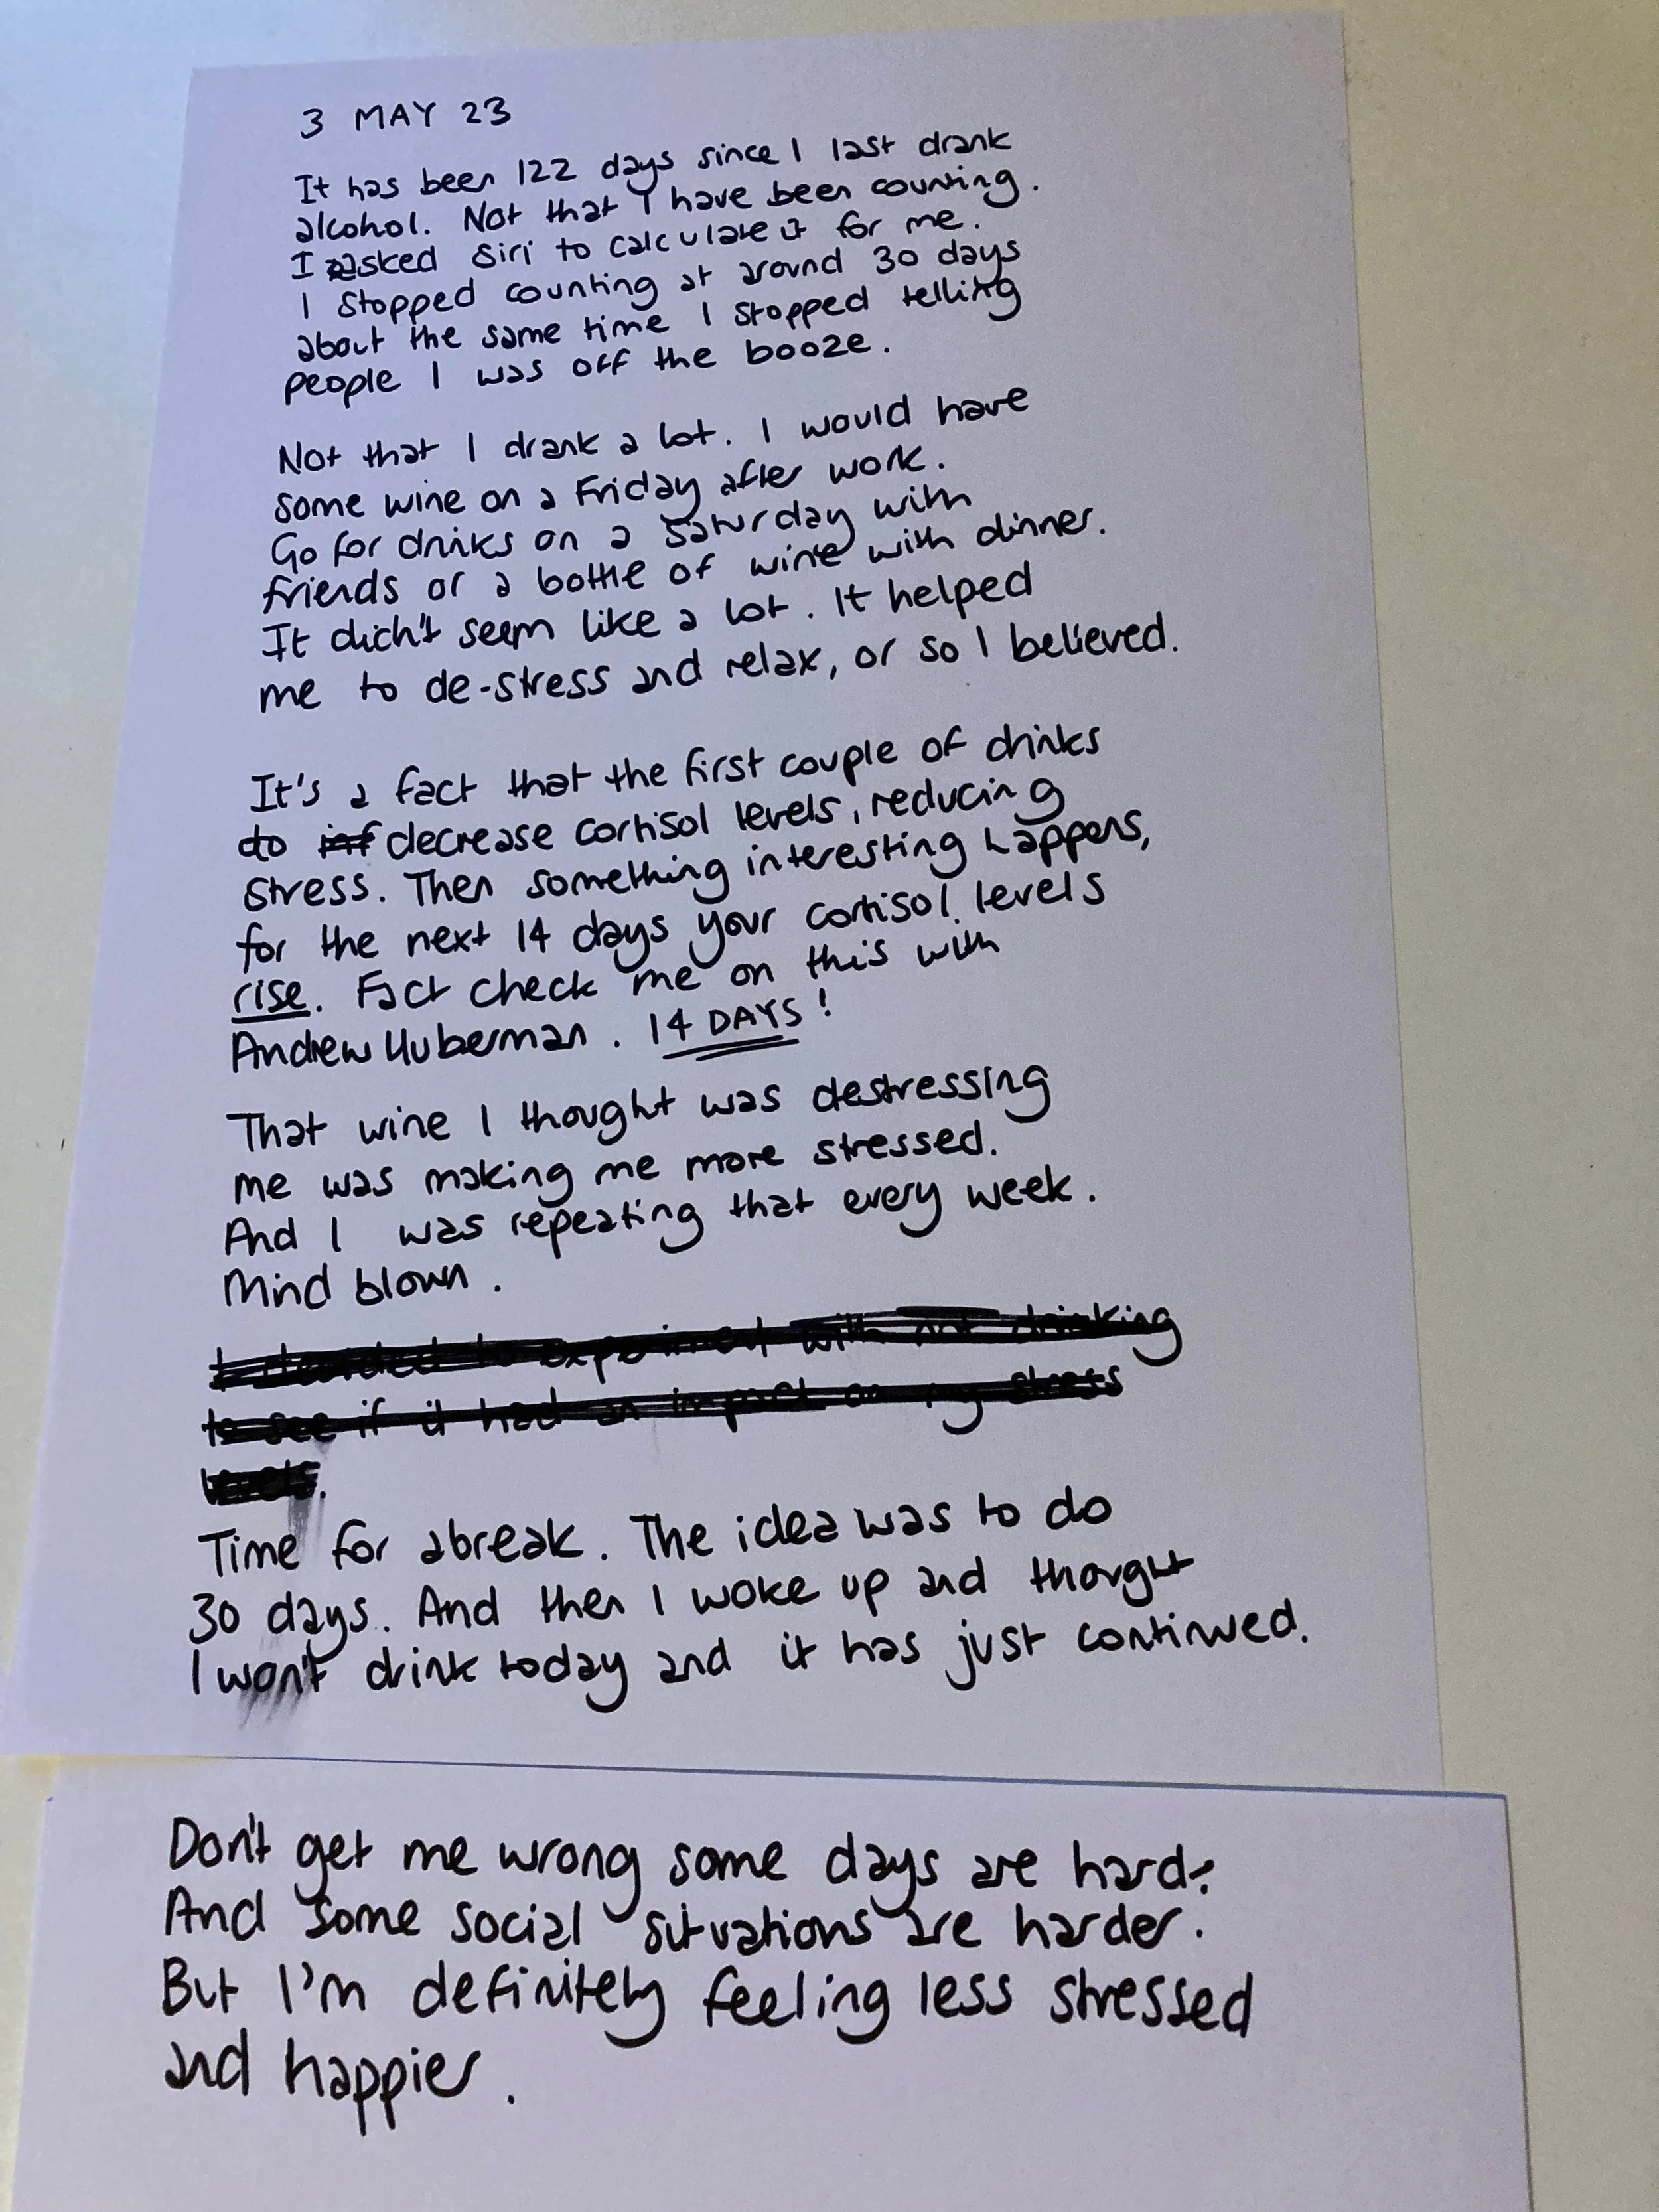 3 MAY 23
It has been 122 days since I last drank
alcohol. Not that I have been counting.
I asked Siri to calculate it for me.
I stopped counting at around 30 days
about the same time I stopped telling
people I was off the booze.
Not that I drank a lot. I would have
some wine on a Friday after work.
Go for drinks on a Saturday with
friends or a bottle of wine with dinner.
It didn't seem like a lot. It helped
me to de-stress and relax, or so I believed.
It's a fact that the first couple of drinks
do inf decrease cortisol levels, reducing
stress. Then something interesting happens,
for the next 14 days your cortisol levels
rise. Fact check me on this with
Andrew Huberman. 14 DAYS!
That wine I thought was destressing
me was making me more stressed.
And I was repeating that every week.
Mind blown.
I decided to experiment with not drinking
to see if it had an impact on my stress
levels.
Time for a break. The idea was to do
30 days. And then I woke up and thought
I won't drink today and it has just continued.
Don't get me wrong some days are hard.
And some social situations are harder.
But I'm definitely feeling less stressed
and happier.